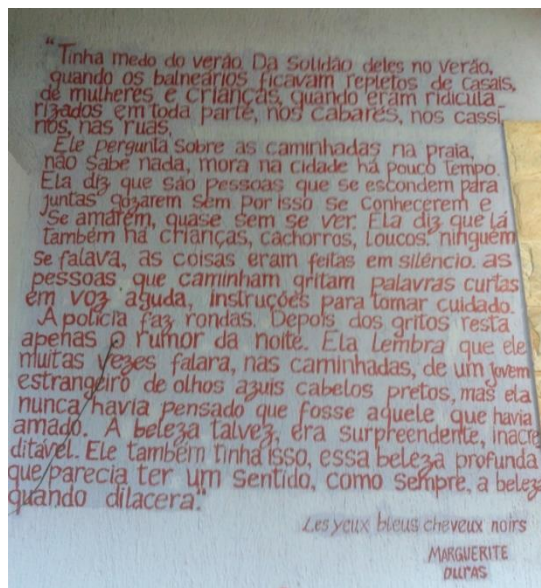 “Tinha medo do verão. Da Solidão deles no verão,
quando os balneários ficavam repletos de casais,
de mulheres e crianças, quando eram ridicula_
rizados em toda parte, nos cabarés, nos cassi_
nos, nas ruas.
Ele pergunta sobre as caminhadas na praia,
não sabe nada, mora na cidade há pouco tempo.
Ela diz que são pessoas que se escondem para
juntas gozarem sem por isso se conhecerem e
se amarem, quase sem se ver. Ela diz que lá
também há crianças, cachorros, loucos. ninguém
se falava, as coisas eram feitas em silêncio. as
pessoas que caminham gritam palavras curtas
em voz aguda, instruções para tomar cuidado.
A polícia faz rondas. Depois dos gritos resta
apenas o rumor da noite. Ela lembra que ele
muitas vezes falara, nas caminhadas, de um jovem
estrangeiro de olhos azuis cabelos pretos, mas ela
nunca havia pensado que fosse aquele que havia
amado. A beleza talvez, era surpreendente, inacre
ditável. Ele também tinha isso, essa beleza profunda
que parecia ter um sentido, como sempre, a beleza
quando dilacera.”
Les yeux bleus cheveux noirs
MARGUERITE
DURAS